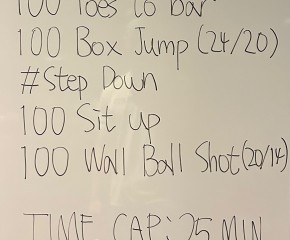 100 Toes to bar
100 Box Jump (24/20)
#Step Down
100 Sit up
100 Wall Ball Shot (20/14)
TIME CAP: 25 MIN